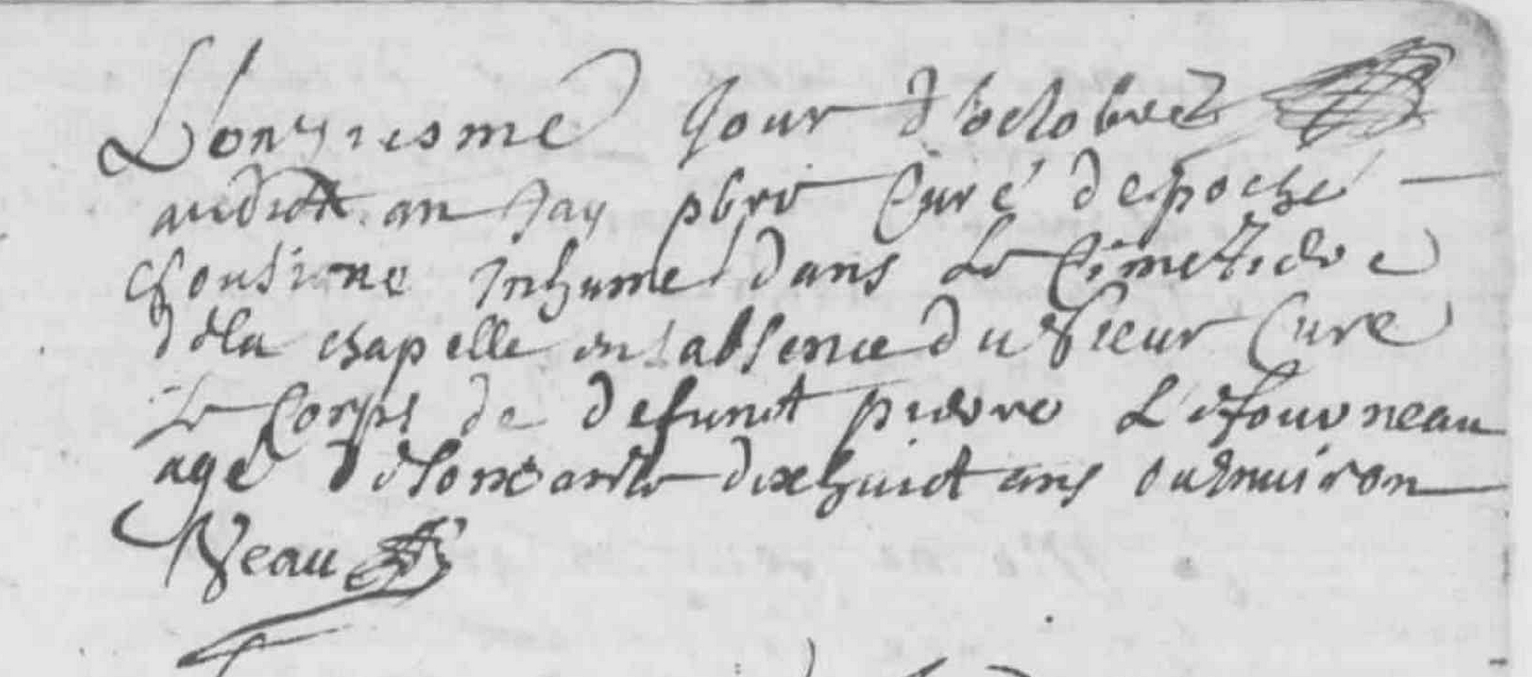 L'onziesme Jour d'octobre
audict an Jay pbre Curé de poché
soubsigné Inhumé dans le Cimetiere
de la chapelle en l'absence du sieur Curé
le Corps de defunct pierre Lefourneau
agé de soixante dixhuict ans ou environ
Veau